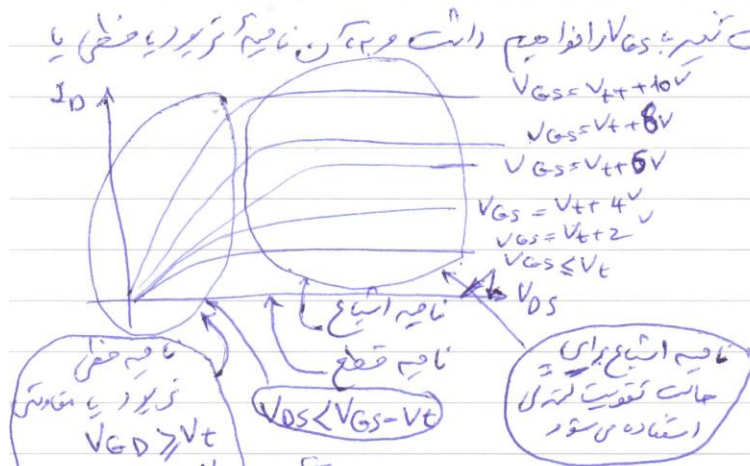 تغییر با VGS کار خواهیم داشت و به آن ناحیهٔ تریود یا خطی یا
ID
VGS = Vt + 10V
VGS = Vt + 8V
VGS = Vt + 6V
VGS = Vt + 4V
VGS = Vt + 2V
VGS ≤ Vt
VDS
ناحیه اشباع
ناحیه قطع
VDS < VGS - Vt
ناحیه خطی
تریود یا مقاومتی
VGD ≥ Vt
ناحیه اشباع برای
حالت تقویت کنندگی
استفاده می شود